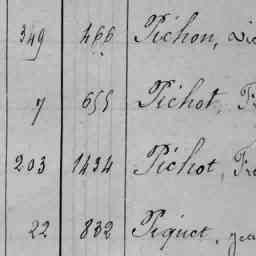 349 466 Pichon,
7 655 Pichot,
203 1434 Pichot,
22 832 Piquet,